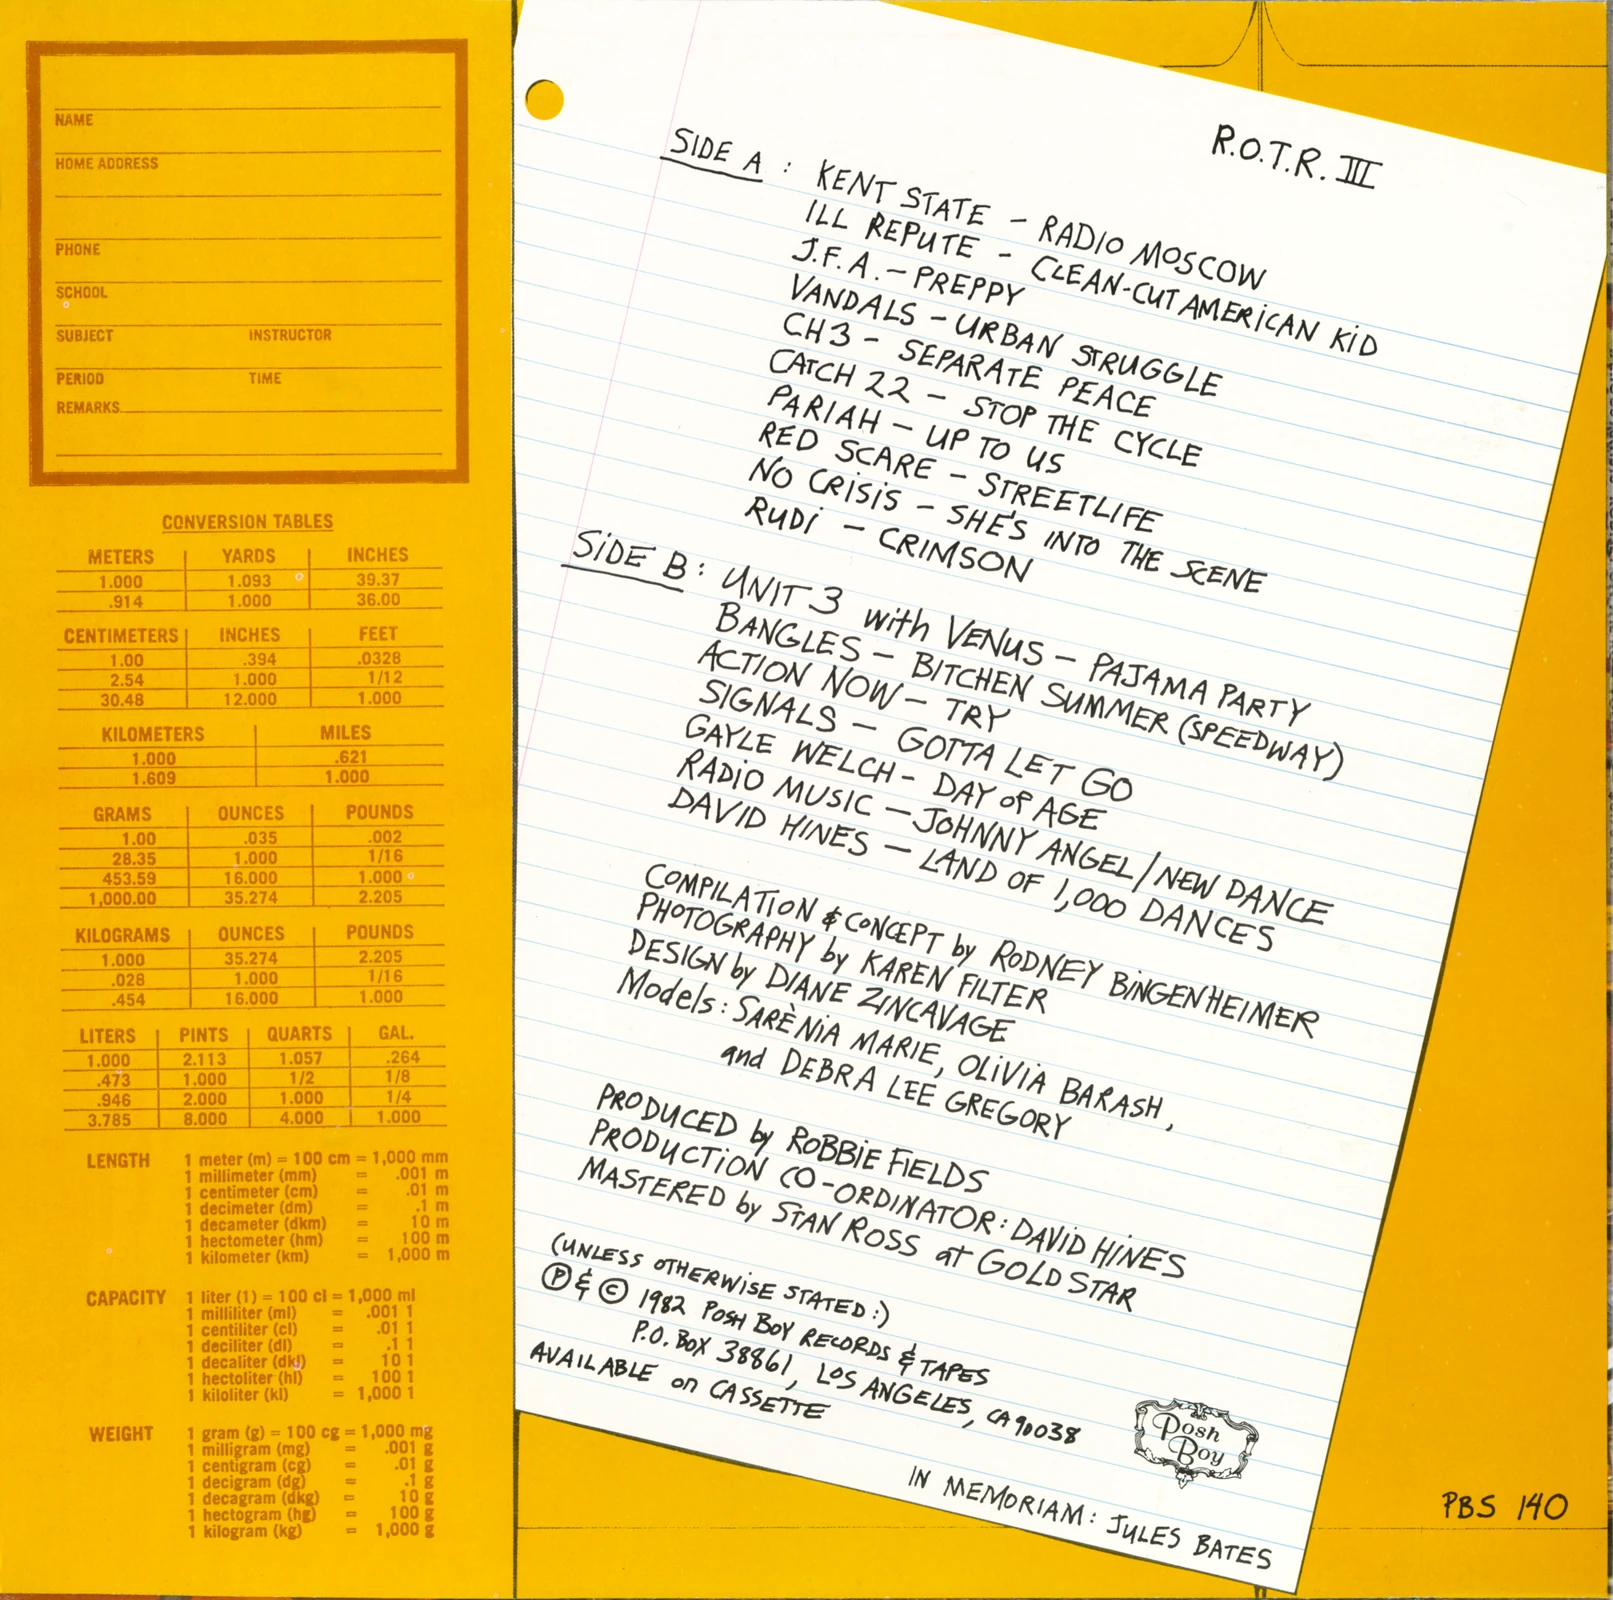 NAME
HOME ADDRESS
PHONE
SCHOOL
SUBJECT INSTRUCTOR
PERIOD TIME
REMARKS
CONVERSION TABLES
METERS YARDS INCHES
1.000 1.093 39.37
.914 1.000 36.00
CENTIMETERS INCHES FEET
1.00 .394 .0328
2.54 1.000 1/12
30.48 12.000 1.000
KILOMETERS MILES
1.000 .621
1.609 1.000
GRAMS OUNCES POUNDS
1.00 .035 .002
28.35 1.000 1/16
453.59 16.000 1.000
1,000.00 35.274 2.205
KILOGRAMS OUNCES POUNDS
1.000 35.274 2.205
.028 1.000 1/16
.454 16.000 1.000
LITERS PINTS QUARTS GAL.
1.000 2.113 1.057 .264
.473 1.000 1/2 1/8
.946 2.000 1.000 1/4
3.785 8.000 4.000 1.000
LENGTH 1 meter (m) = 100 cm = 1,000 mm
1 millimeter (mm) = .001 m
1 centimeter (cm) = .01 m
1 decimeter (dm) = .1 m
1 decameter (dkm) = 10 m
1 hectometer (hm) = 100 m
1 kilometer (km) = 1,000 m
CAPACITY 1 liter (1) = 100 cl = 1,000 ml
1 milliliter (ml) = .001 1
1 centiliter (cl) = .01 1
1 deciliter (dl) = .1 1
1 decaliter (dkl) = 10 1
1 hectoliter (hl) = 100 1
1 kiloliter (kl) = 1,000 1
WEIGHT 1 gram (g) = 100 cg = 1,000 mg
1 milligram (mg) = .001 g
1 centigram (cg) = .01 g
1 decigram (dg) = .1 g
1 decagram (dkg) = 10 g
1 hectogram (hg) = 100 g
1 kilogram (kg) = 1,000 g
R.O.T.R. III
SIDE A : KENT STATE - RADIO MOSCOW
ILL REPUTE - CLEAN-CUT AMERICAN KID
J.F.A. - PREPPY
VANDALS - URBAN STRUGGLE
CH3 - SEPARATE PEACE
CATCH 22 - STOP THE CYCLE
PARIAH - UP TO US
RED SCARE - STREETLIFE
NO CRISIS - SHE'S INTO THE SCENE
RUDI - CRIMSON
SIDE B : UNIT 3 with VENUS - PAJAMA PARTY
BANGLES - BITCHEN SUMMER (SPEEDWAY)
ACTION NOW - TRY
SIGNALS - GOTTA LET GO
GAYLE WELCH - DAY OF AGE
RADIO MUSIC - JOHNNY ANGEL / NEW DANCE
DAVID HINES - LAND OF 1,000 DANCES
COMPILATION & CONCEPT by RODNEY BINGENHEIMER
PHOTOGRAPHY by KAREN FILTER
DESIGN by DIANE ZINCAVAGE
Models : SARÈNIA MARIE, OLIVIA BARASH,
and DEBRA LEE GREGORY
PRODUCED by ROBBIE FIELDS
PRODUCTION CO-ORDINATOR : DAVID HINES
MASTERED by STAN ROSS at GOLD STAR
(UNLESS OTHERWISE STATED :)
℗ & © 1982 POSH BOY RECORDS & TAPES
P.O. BOX 38861, LOS ANGELES, CA 90038
AVAILABLE on CASSETTE
Posh
Boy
IN MEMORIAM : JULES BATES
PBS 140